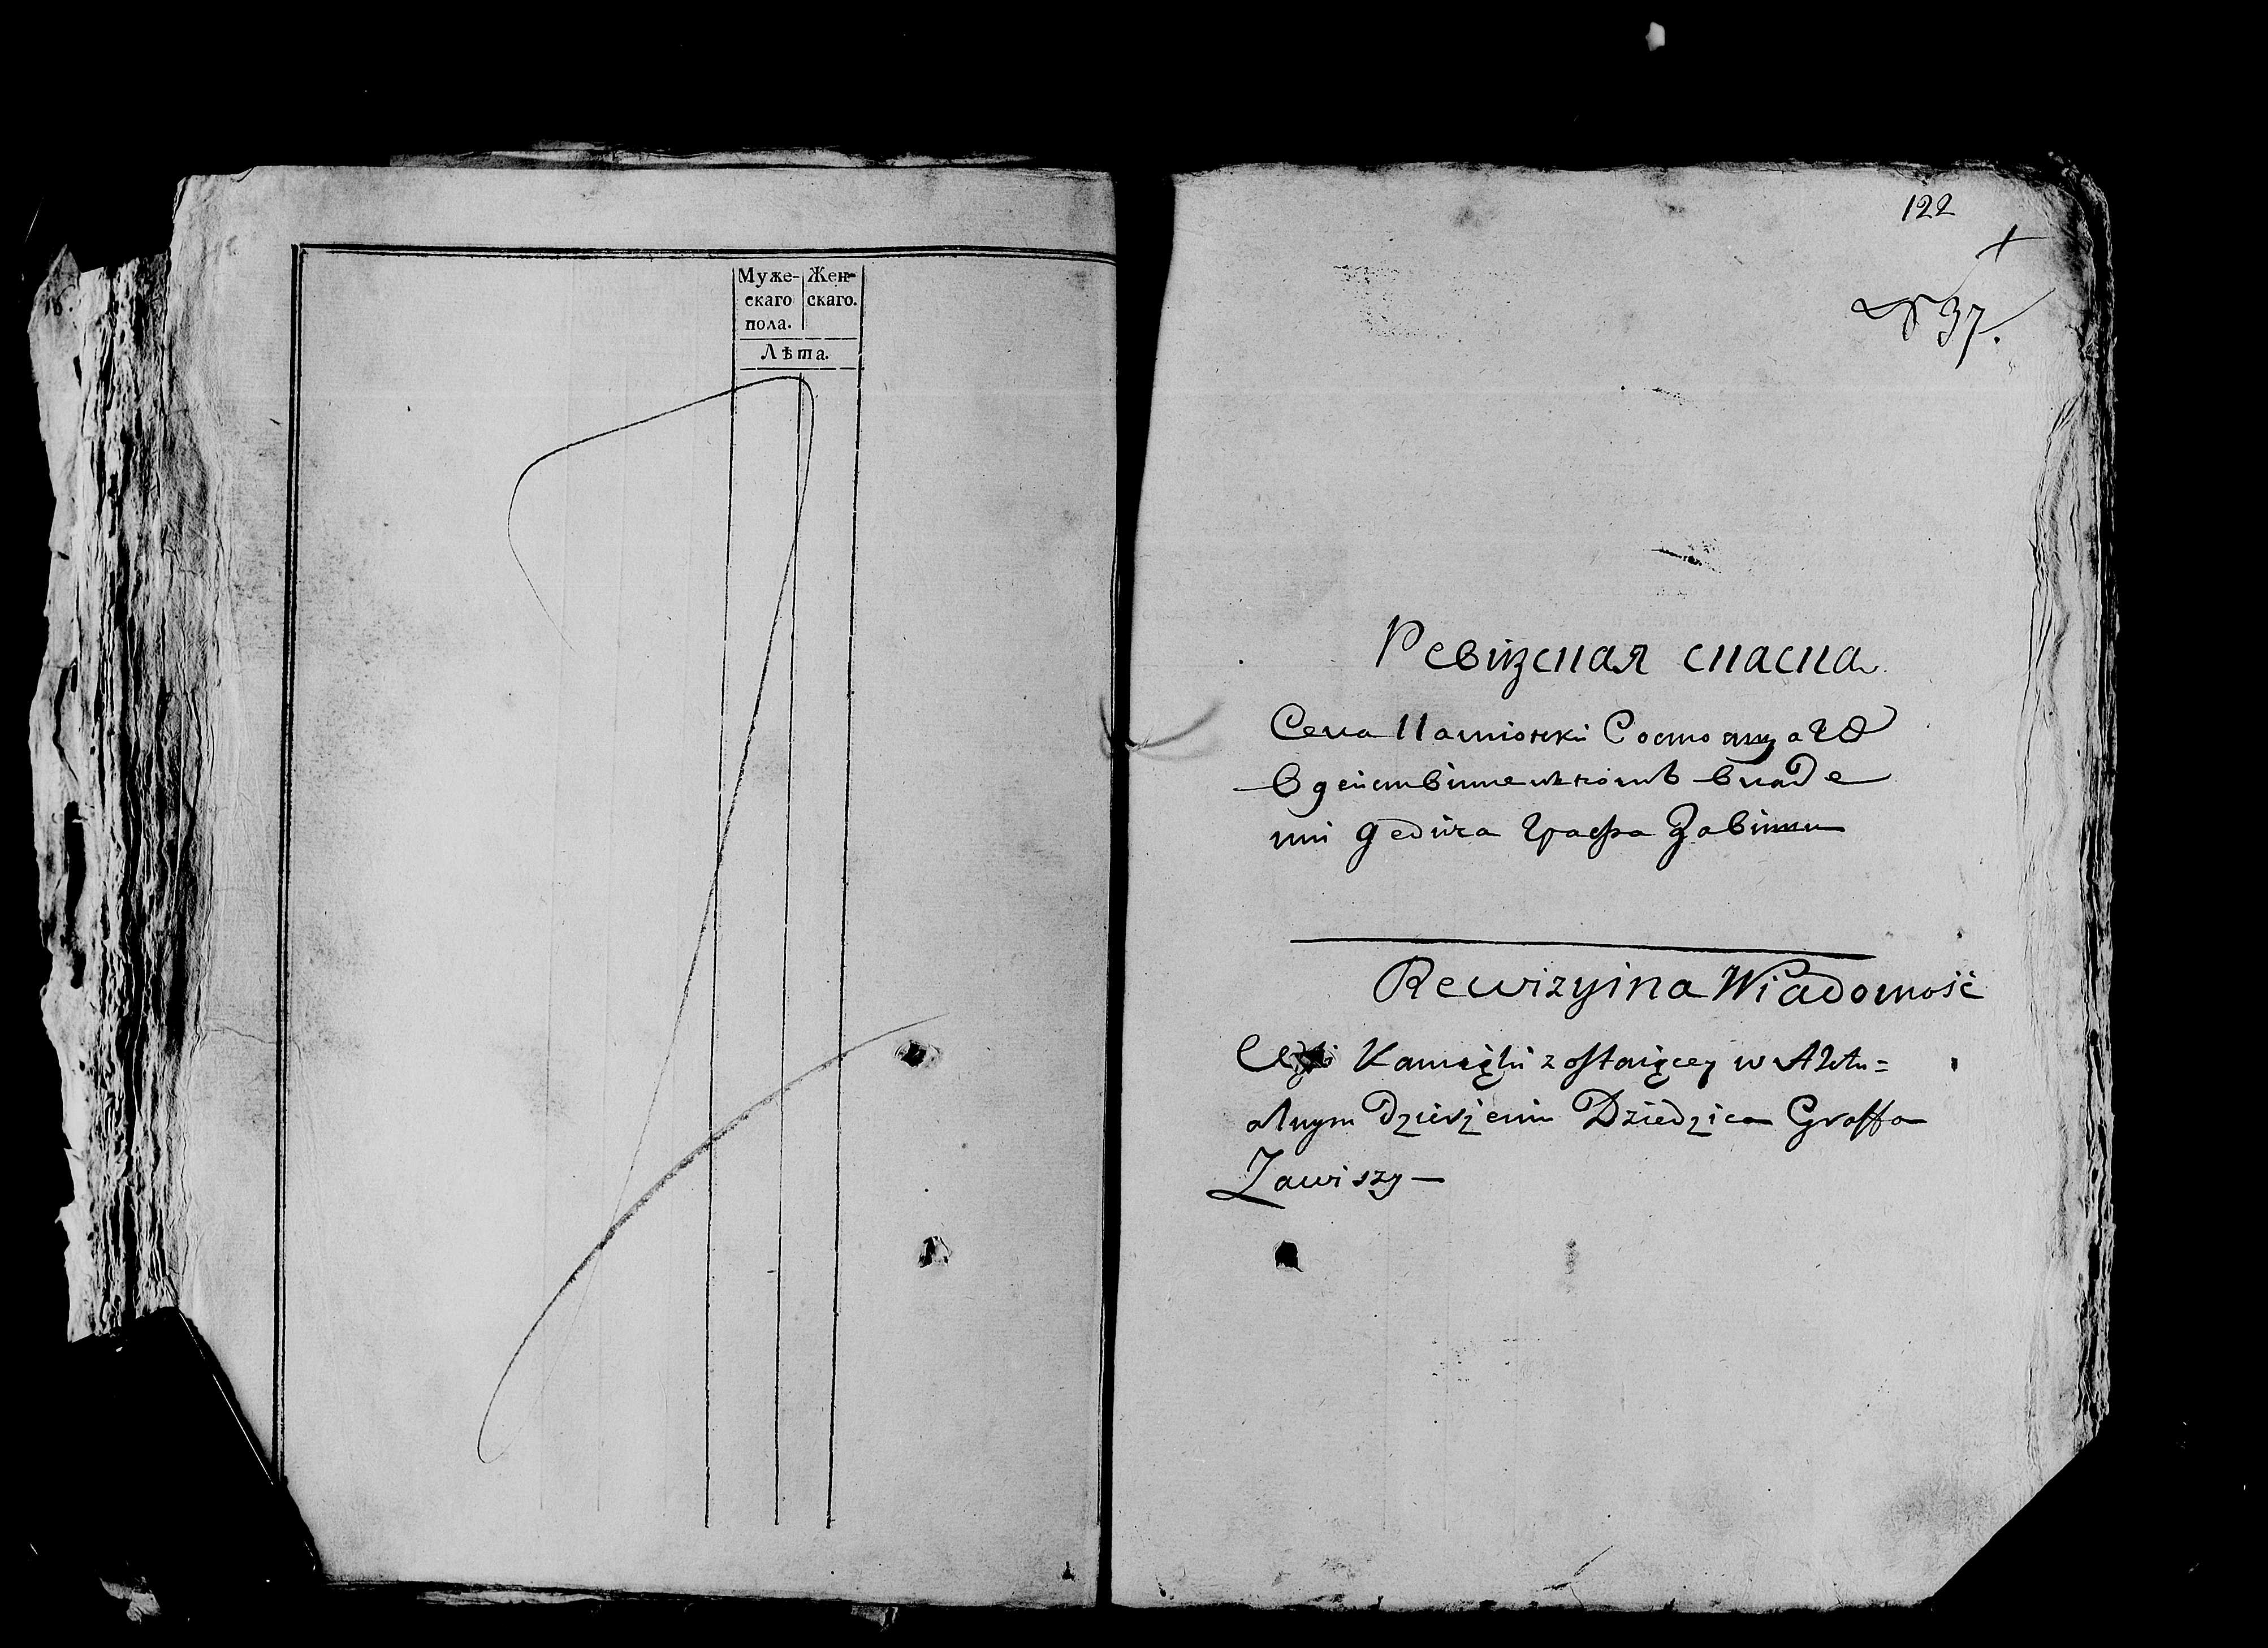 Муже- Жен-
скаго скаго.
пола.
Лѣта.
122
№ 37.
Ревізская скаска
Села Камюнки Состоящаго
в действителномъ владе
нии дедича графа Завиши
Rewizyina Wiadomość
zostaiącey w Aktu=
alnym dzierżeniu Dziedzica Graffa
Zawiszy —